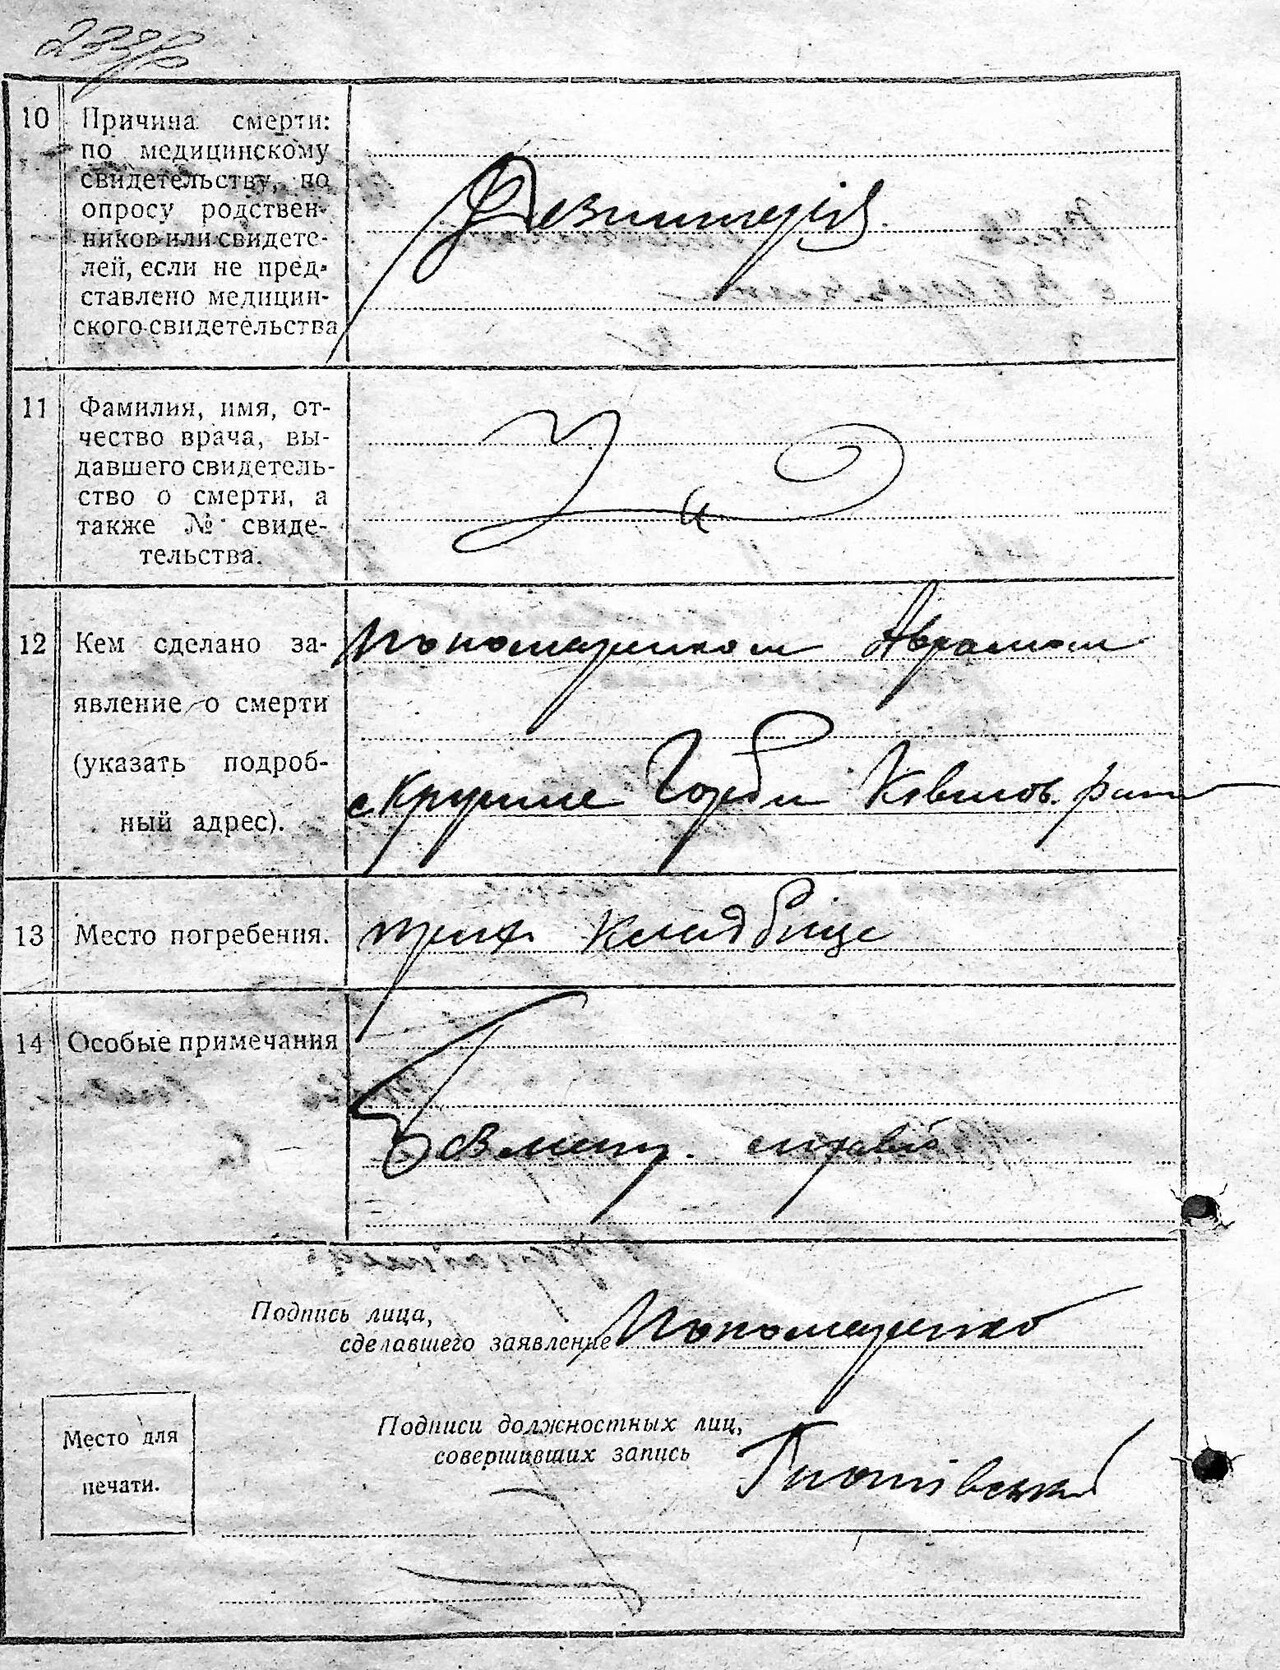 10 Причина смерти:
по медицинскому
свидетельству, по
опросу родствен-
ников или свидете-
лей, если не пред-
ставлено медицин-
ского свидетельства
Дезинтерія
11 Фамилия, имя, от-
чество врача, вы-
давшего свидетель-
ство о смерти, а
также № свиде-
тельства.
12 Кем сделано за-
явление о смерти
(указать подроб-
ный адрес).
Пономаренком Аврамом
с Крупине Горби
13 Место погребения.
кладбіще
14 Особые примечания
Подпись лица,
сделавшего заявление Пономаренко
Подписи должностных лиц,
совершивших запись
Место для
печати.